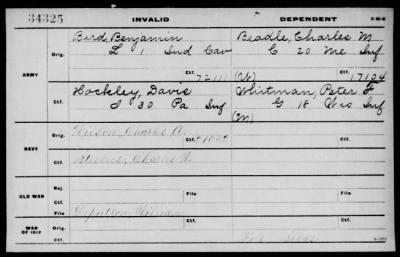 34325 INVALID DEPENDENT
Bird, Benjamin Beadle, Charles M
Orig. L 1 Ind Cav C 20 Me Inf
ARMY Ctf. 72111 (W) Ctf. 17104
Hockley, Davis Whitman, Peter F
Ctf. I 30 Pa Inf G 18 Wis Inf
(M)
Orig. Wilson, Charles A. Ctf. Ctf.
NAVY
Ctf. Charles H.
Rej. File File
OLD WAR
Ctf.
File William Ctf. Ctf.
WAR OF 1812
Ctf. Silas